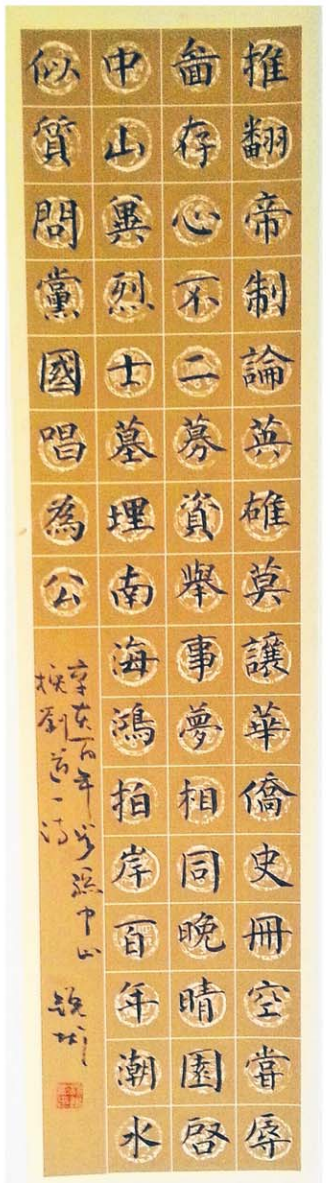 推翻帝制論英雄莫讓華僑史冊空嘗辱
啚存心不二募資舉事夢相同晚晴園啓
中山冀烈士墓埋南海鴻拍岸百年潮水
似質問黨國唱為公
辛亥百年步孫中山
挽劉道一詩